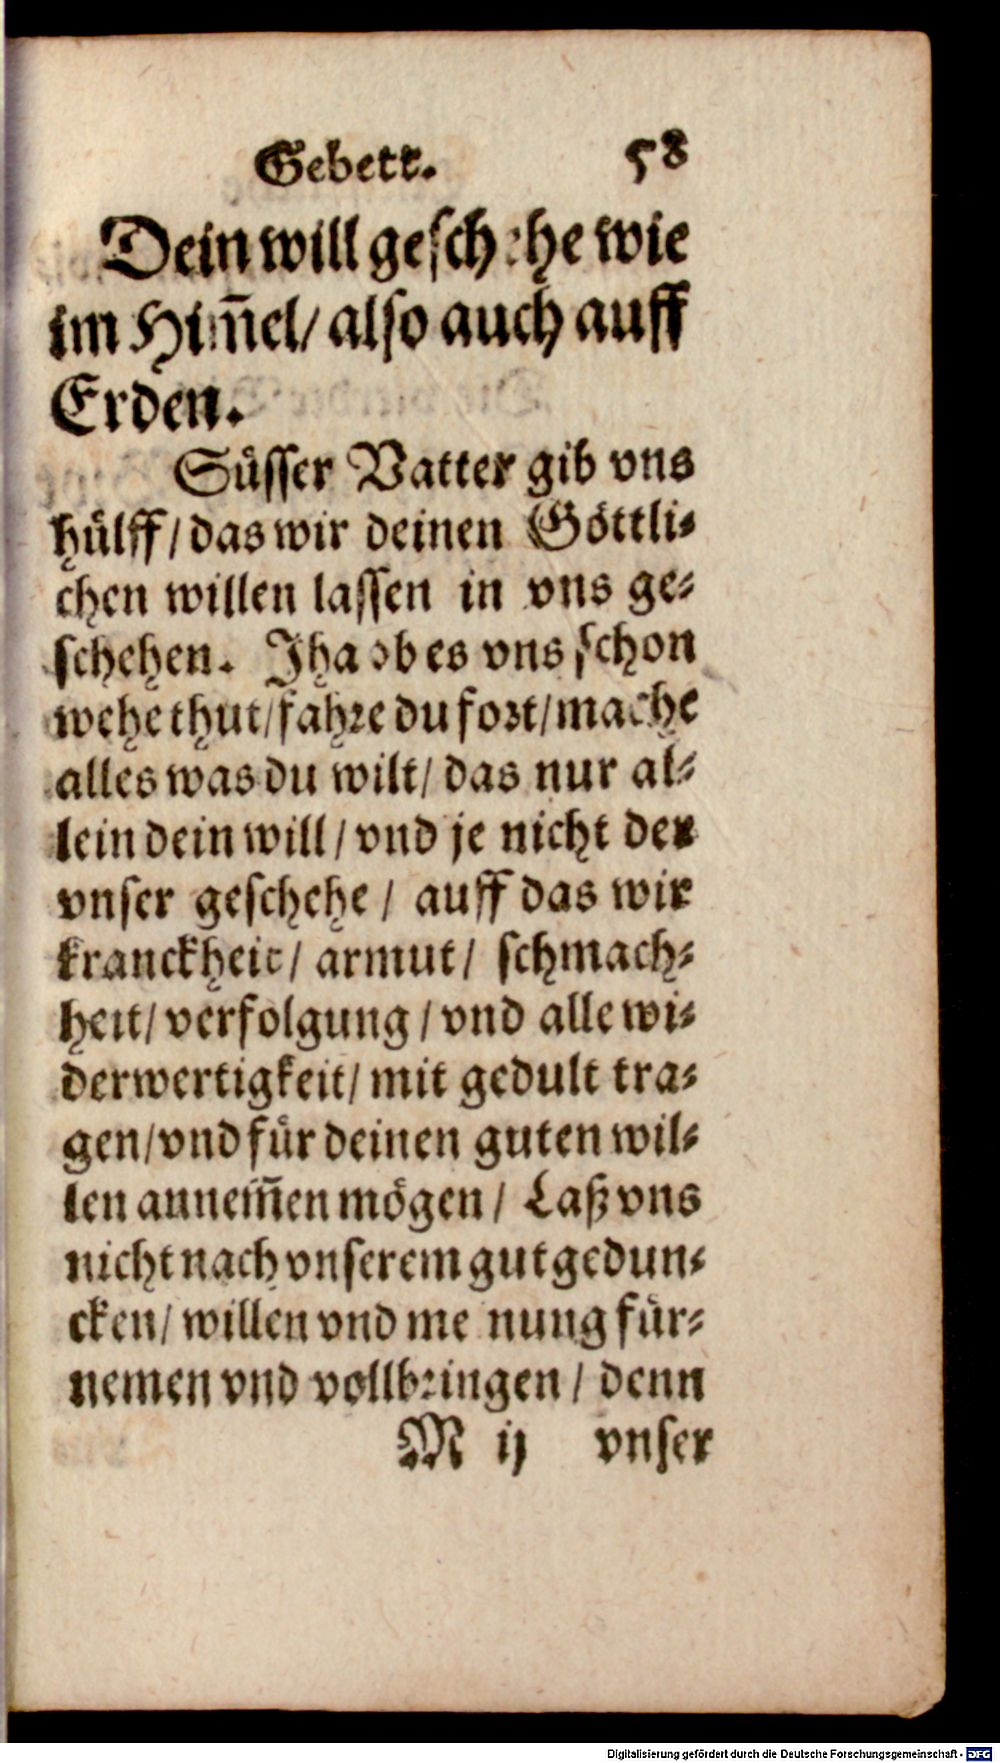 Gebett. 58
Dein will geschehe wie
im Him̄el/ also auch auff
Erden.
Süsser Vatter gib vns
hülff/ das wir deinen Göttli-
chen willen lassen in vns ge-
schehen. Jha ob es vns schon
wehe thut/ fahre du fort/ mache
alles was du wilt/ das nur al-
lein dein will/ vnd je nicht der
vnser geschehe/ auff das wir
kranckheit/ armut/ schmach-
heit/ verfolgung/ vnd alle wi-
derwertigkeit/ mit gedult tra-
gen/ vnd für deinen guten wil-
len annem̄en mögen/ Laß vns
nicht nach vnserem gutgedun-
cken/ willen vnd me nung für-
nemen vnd vollbringen/ denn
M ij vnser
Digitalisierung gefördert durch die Deutsche Forschungsgemeinschaft - DFG